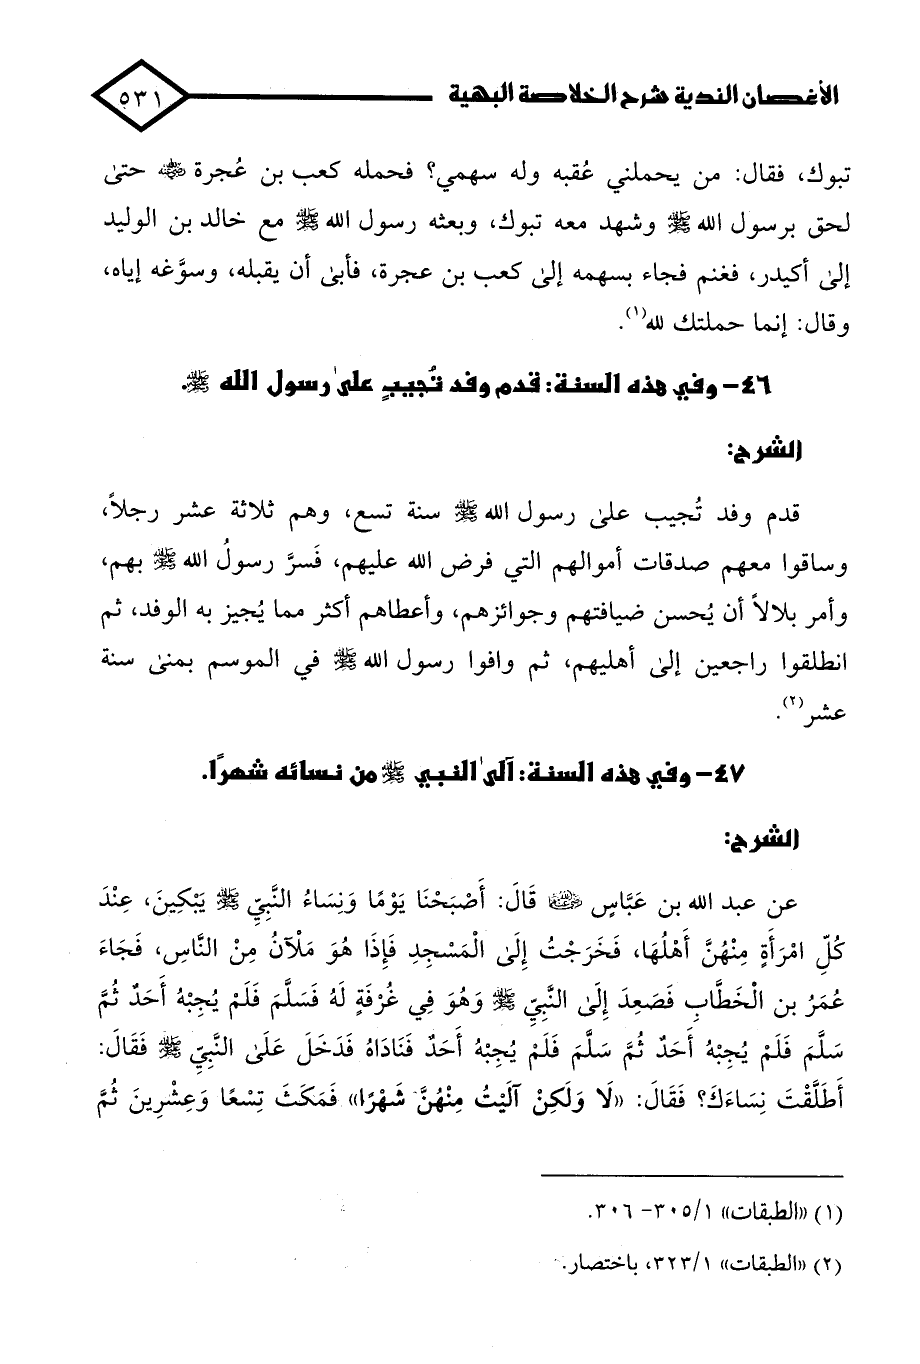 الأغصان الندية شرح الخلاصة البهية
٥٣١
تبوك، فقال: من يحملني عُقبه وله سهمي؟ فحمله كعب بن عُجرة رضي الله عنه حتىٰ
لحق برسول الله ﷺ وشهد معه تبوك، وبعثه رسول الله ﷺ مع خالد بن الوليد
إلىٰ أكيدر، فغنم فجاء بسهمه إلىٰ كعب بن عجرة، فأبىٰ أن يقبله، وسوَّغه إياه،
وقال: إنما حملتك لله(١).
٤٦- وفي هذه السنة: قدم وفد تُجيبٍ علىٰ رسول الله ﷺ.
الشرح:
قدم وفد تُجيب علىٰ رسول الله ﷺ سنة تسع، وهم ثلاثة عشر رجلاً،
وساقوا معهم صدقات أموالهم التي فرض الله عليهم، فَسرَّ رسولُ الله ﷺ بهم،
وأمر بلالاً أن يُحسن ضيافتهم وجوائزهم، وأعطاهم أكثر مما يُجيز به الوفد، ثم
انطلقوا راجعين إلىٰ أهليهم، ثم وافوا رسول الله ﷺ في الموسم بمنىٰ سنة
عشر(٢).
٤٧- وفي هذه السنة: آلىٰ النبي ﷺ من نسائه شهرًا.
الشرح:
عن عبد الله بن عَبَّاسٍ رضي الله عنهما قَالَ: أَصْبَحْنَا يَوْمًا وَنِسَاءُ النَّبِيِّ ﷺ يَبْكِينَ، عِنْدَ
كُلِّ امْرَأَةٍ مِنْهُنَّ أَهْلُهَا، فَخَرَجْتُ إِلَىٰ الْمَسْجِدِ فَإِذَا هُوَ مَلْآنُ مِنْ النَّاسِ، فَجَاءَ
عُمَرُ بن الْخَطَّابِ فَصَعِدَ إِلَىٰ النَّبِيِّ ﷺ وَهُوَ فِي غُرْفَةٍ لَهُ فَسَلَّمَ فَلَمْ يُجِبْهُ أَحَدٌ ثُمَّ
سَلَّمَ فَلَمْ يُجِبْهُ أَحَدٌ ثُمَّ سَلَّمَ فَلَمْ يُجِبْهُ أَحَدٌ فَنَادَاهُ فَدَخَلَ عَلَىٰ النَّبِيِّ ﷺ فَقَالَ:
أَطَلَّقْتَ نِسَاءَكَ؟ فَقَالَ: «لَا وَلَكِنْ آلَيْتُ مِنْهُنَّ شَهْرًا» فَمَكَثَ تِسْعًا وَعِشْرِينَ ثُمَّ
(١) «الطبقات» ١/ ٣٠٥- ٣٠٦.
(٢) «الطبقات» ١/ ٣٢٣، باختصار.